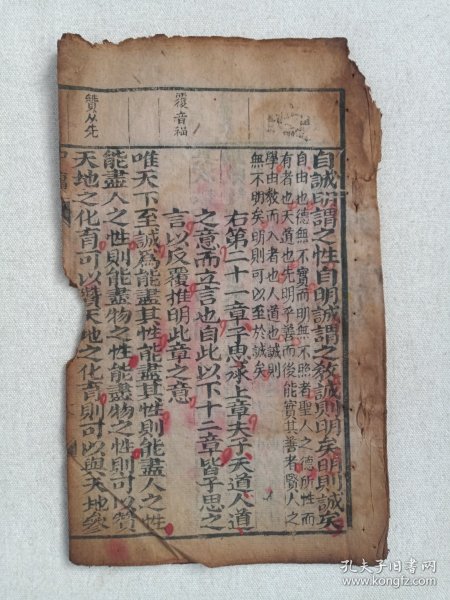 覆音福
贊从先
自誠明謂之性自明誠謂之教誠則明矣明則誠矣
自由也德無不實而明無不照者聖人之德所性而
有者也天道也先明乎善而後能實其善者賢人之
學由教而入者也人道也誠則
無不明矣明則可以至於誠矣
右第二十一章子思承上章夫子天道人道
之意而立言也自此以下十二章皆子思之
言以反覆推明此章之意
唯天下至誠爲能盡其性能盡其性則能盡人之性
能盡人之性則能盡物之性能盡物之性則可以贊
天地之化育可以贊天地之化育則可以與天地參
中庸
孔夫子旧书网
www.kongfz.com